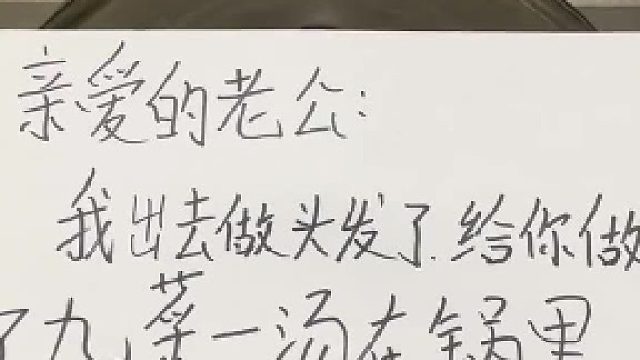 亲爱的老公:
我出去做头发了.给你做
了九菜一汤在锅里